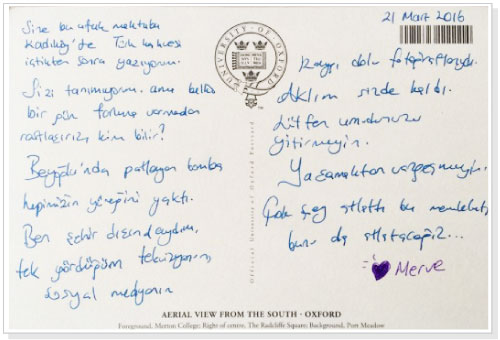 Size bu ufak mektubu
Kadıköy'de Türk kahvesi
içtikten sonra yazıyorum.
Sizi tanımıyorum ama belki
bir gün farkına varmadan
rastlaşırız kim bilir?
Beyoğlu'nda patlayan bomba
hepimizin yüreğini yaktı.
Ben şehir dışındaydım,
tek gördüğüm televizyonun,
sosyal medyanın
UNIVERSITY OF OXFORD
Official University of Oxford Postcard
21 Mart 2016
kaygı dolu fotoğraflarıydı.
Aklım sizde kaldı.
Lütfen umudunuzu
yitirmeyin.
Yaşamaktan vazgeçmeyin.
Çok şey atlattı bu memleket,
bunu da atlatacağız...
Merve
AERIAL VIEW FROM THE SOUTH · OXFORD
Foreground, Merton College; Right of centre, The Radcliffe Square; Background, Port Meadow